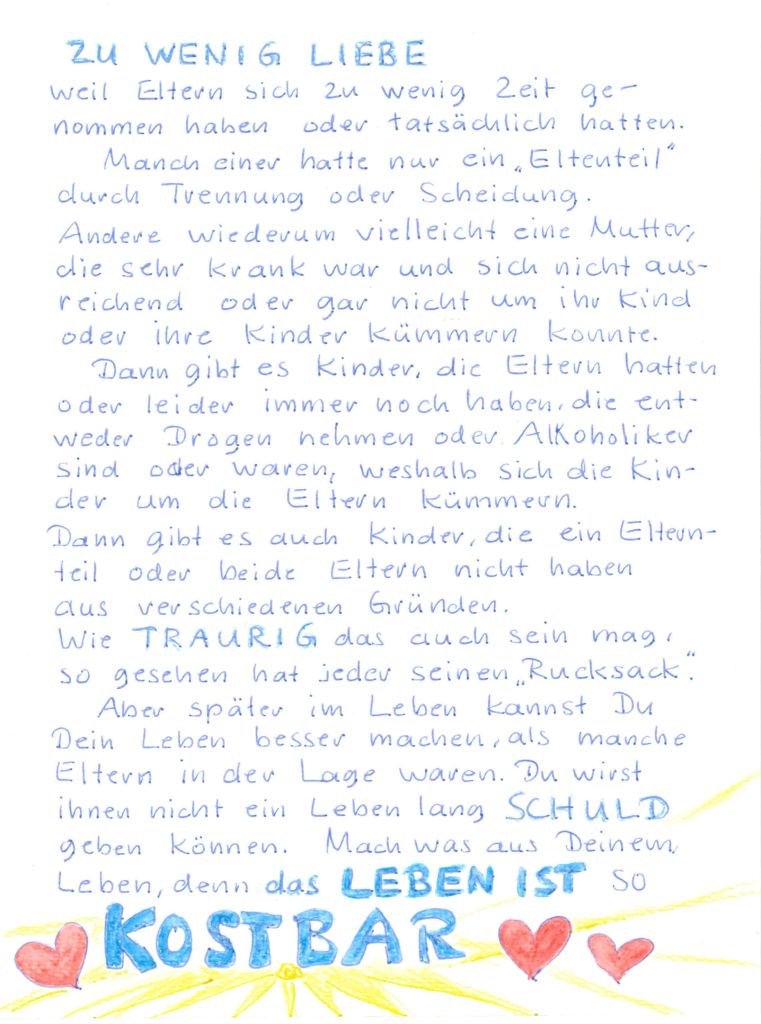 ZU WENIG LIEBE
weil Eltern sich zu wenig Zeit ge-
nommen haben oder tatsächlich hatten.
Manch einer hatte nur ein „Eltenteil"
durch Trennung oder Scheidung.
Andere wiederum vielleicht eine Mutter,
die sehr krank war und sich nicht aus-
reichend oder gar nicht um ihr Kind
oder ihre Kinder kümmern konnte.
Dann gibt es Kinder, die Eltern hatten
oder leider immer noch haben, die ent-
weder Drogen nehmen oder Alkoholiker
sind oder waren, weshalb sich die Kin-
der um die Eltern kümmern.
Dann gibt es auch Kinder, die ein Eltern-
teil oder beide Eltern nicht haben
aus verschiedenen Gründen.
Wie TRAURIG das auch sein mag,
so gesehen hat jeder seinen „Rucksack".
Aber später im Leben kannst Du
Dein Leben besser machen, als manche
Eltern in der Lage waren. Du wirst
ihnen nicht ein Leben lang SCHULD
geben können. Mach was aus Deinem
Leben, denn das LEBEN IST so
KOSTBAR